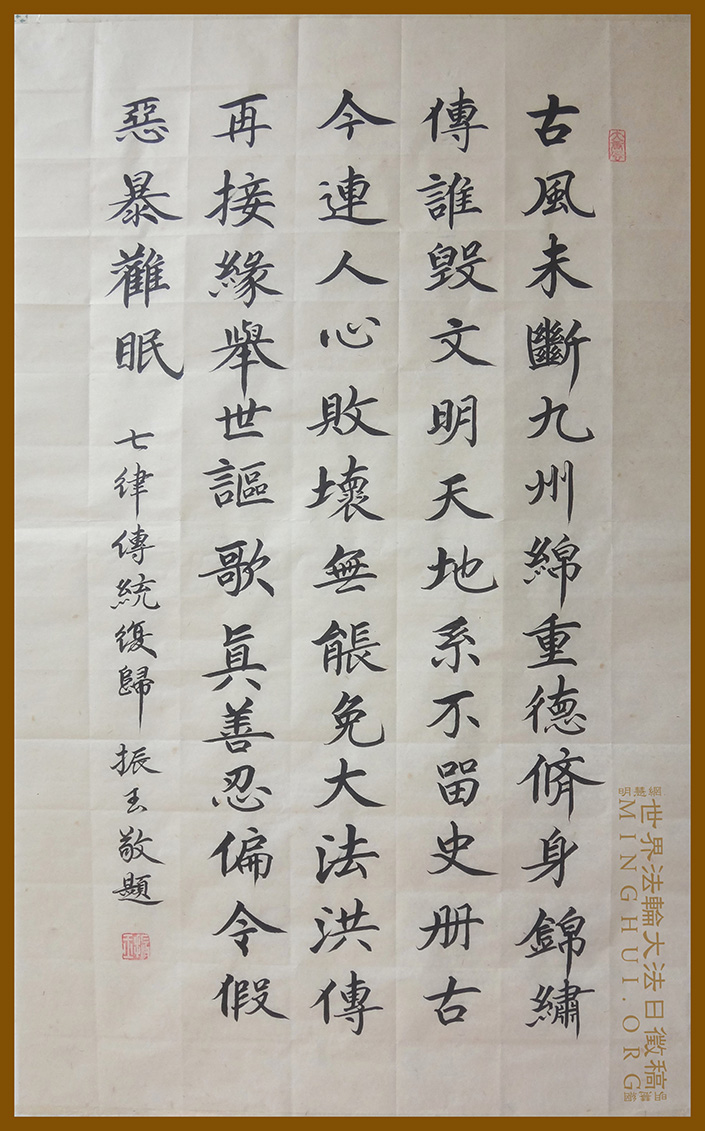 古風未斷九州綿重德脩身錦繡
傳誰毀文明天地系不留史册古
今連人心敗壞無能免大法洪傳
再接緣舉世謳歌眞善忍偏令假
惡暴難眠 七律傳統復歸 振玉敬題
明慧網
世界法輪大法日徵稿
MINGHUI.ORG
明慧網